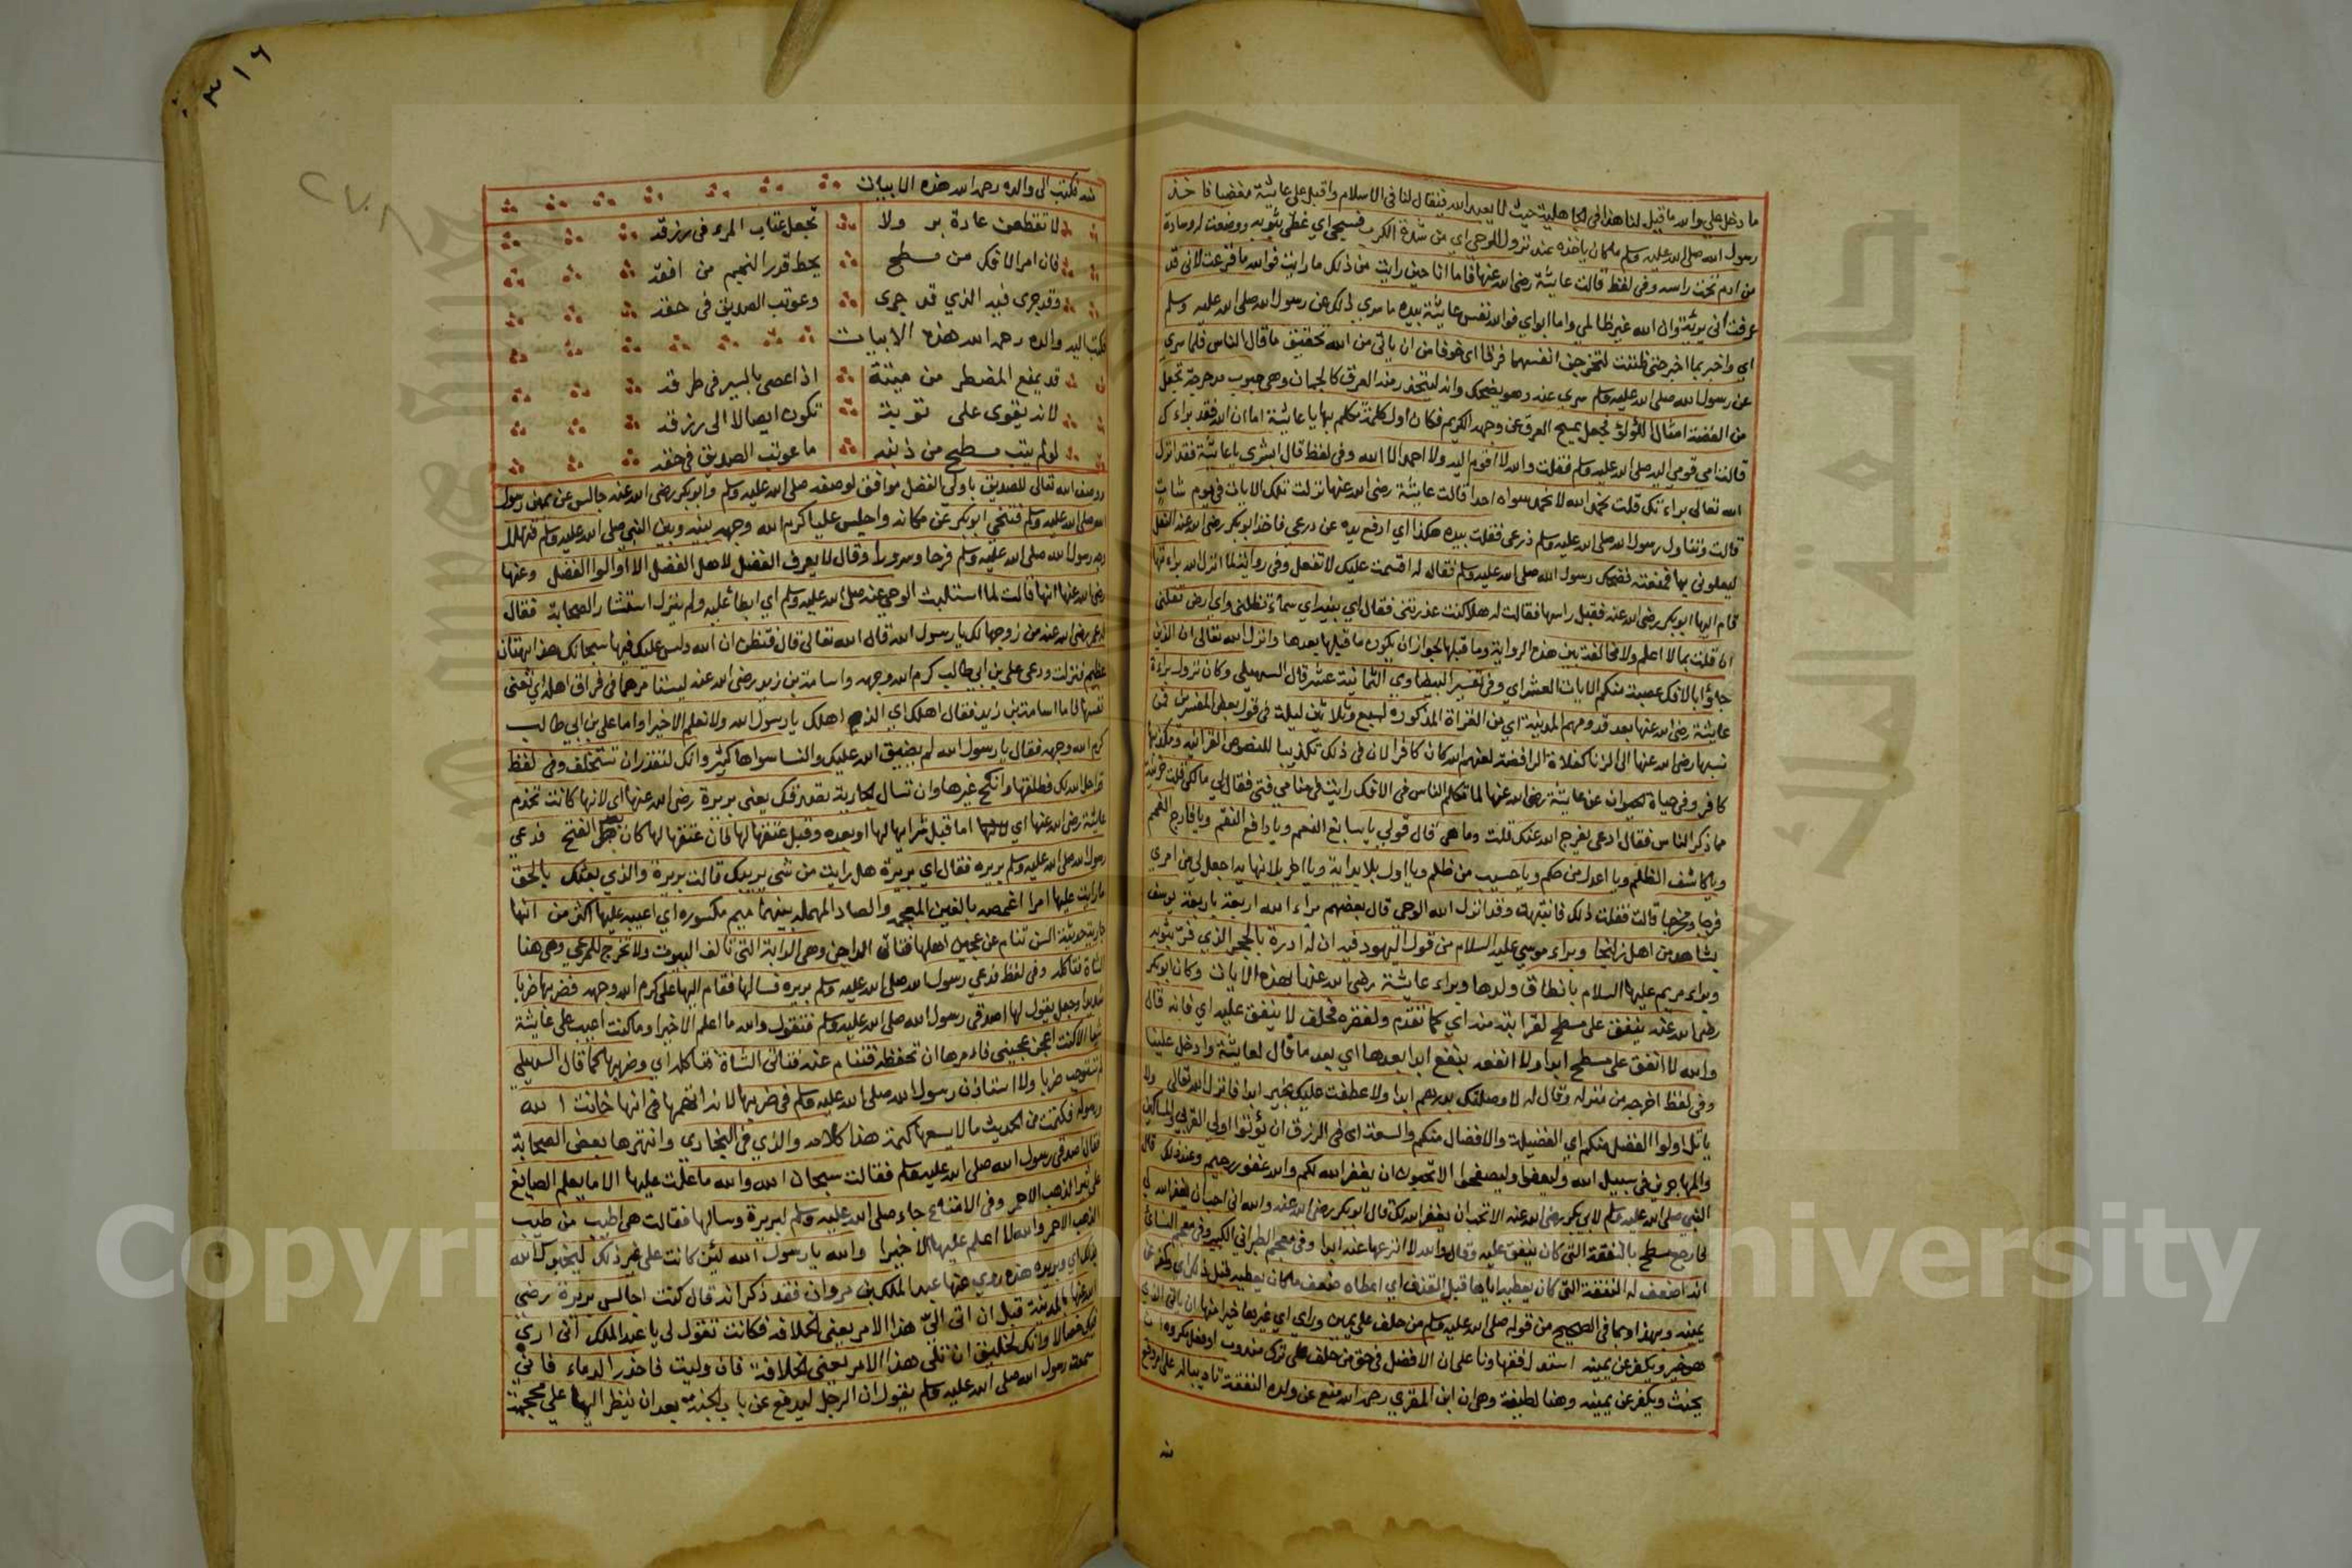 ما دخل علي والله ما قيل لنا هذا في الجاهلية حيث لا يعبد الله فيقال لنا في الاسلام واقبل على عايشة مغضبا فاخذ
رسول الله صلى الله عليه وسلم ما كان ياخذه عند نزول الوحي اي من شدة الكرب فسجي اي غطي بثوبه ووضعت له وسادة
من ادم تحت راسه وفي لفظ قالت عايشة رضي الله عنها فاما انا حين رايت من ذلك ما رايت فوالله ما فزعت لاني قد
عرفت اني بريئة وان الله غير ظالمي واما ابواي فوالذي نفس عايشة بيده ما سري ذلك عن رسول الله صلى الله عليه وسلم
اي واخبر بما اخبر حتى ظننت لتخرجن انفسهما فرقا اي خوفا من ان ياتي من الله تحقيق ما قال الناس فلما سري
عن رسول الله صلى الله عليه وسلم سري عنه وهو يضحك وانه ليتحدر منه العرق كالجمان وهي حبوب مدحرجة تجعل
من الفضة امثال اللؤلؤ فجعل يمسح العرق عن وجهه الكريم فكان اول كلمة تكلم بها يا عايشة اما ان الله فقد براءك
قالت امي قومي اليه صلى الله عليه وسلم فقلت والله لا اقوم اليه ولا احمد الا الله وفي لفظ قال ابشري يا عايشة فقد انزل
الله تعالى براءتك قلت نحمد الله لا نحمد سواه احدا قالت عايشة رضي الله عنها نزلت تلك الايات في يوم شات
قالت وتناول رسول الله صلى الله عليه وسلم ذرعي فقلت بيده هكذا اي ادفع يده عن درعي فاخذ ابو بكر رضي الله عنه النعل
ليعلوني بها فمنعته فضحك رسول الله صلى الله عليه وسلم فقال له اقسمت عليك لا تفعل وفي رواية لما انزل الله براءتها
قام اليها ابو بكر رضي الله عنه فقبل راسها فقالت له هلا كنت عذرتني فقال اي بنية اي سماء تظلني واي ارض تقلني
ان قلت بما لا اعلم ولا مخالفة بين هذه الرواية وما قبلها لجواز ان يكون ما قبلها بعدها وانزل الله تعالى ان الذين
جاؤا بالافك عصبة منكم الايات العشر اي وفي تفسير البيضاوي الثمانية عشر قال السهيلي وكان نزول براءة
عايشة رضي الله عنها بعد قدومهم المدينة اي من الغزاة المذكورة لسبع وثلاثين ليلة في قول بعض المفسرين فمن
نسبها رضي الله عنها الى الزنا كغلاة الرافضة لعنهم الله كان كافرا لان في ذلك تكذيبا للنصوص القرانية ومكذبها
كافر وفي حياة الحيوان عن عايشة رضي الله عنها لما تكلم الناس في الافك رايت في منامي فتى فقال لي مالك قلت حزينة
مما ذكر الناس فقال ادعي يفرج الله عنك قلت وما هي قال قولي يا سابغ النعم ويا دافع النقم ويا فارج الغمم
ويا كاشف الظلم ويا اعدل من حكم ويا حسيب من ظلم ويا اول بلا بداية ويا اخر بلا نهاية اجعل لي من امري
فرجا ومخرجا قالت فقلت ذلك فانتبهت وقد انزل الله الوحي قال بعضهم براء الله اربعة باربعة يوسف
بشاهد من اهل زليخا وبراء موسى عليه السلام من قول اليهود فيه ان له ادرة بالحجر الذي فر بثوبه
وبراء مريم عليها السلام بانطاق ولدها وبراء عايشة رضي الله عنها بهذه الايات وكان ابو بكر
رضي الله عنه ينفق على مسطح لقرابته منه اي كما تقدم ولفقره فحلف لا ينفق عليه اي فانه قال
والله لا انفق على مسطح ابدا ولا انفعه بنفع ابدا بعدها اي بعد ما قال لعايشة وادخل علينا
وفي لفظ اخرجه من منزله وقال له لا وصلتك بدرهم ابدا ولا عطفت عليك بخير ابدا فانزل الله تعالى ولا
ياتل اولوا الفضل منكم اي الفضيلة والافضال منكم والسعة اي في الرزق ان يؤتوا اولي القربى والمساكين
والمهاجرين في سبيل الله وليعفوا وليصفحوا الا تحبون ان يغفر الله لكم والله غفور رحيم وعند ذلك قال
النبي صلى الله عليه وسلم لابي بكر رضي الله عنه الا تحب ان يغفر الله لك قال ابو بكر رضي الله عنه والله اني احب ان يغفر الله لي
فارجع مسطح بالنفقة التي كان ينفق عليه وقال والله لا انزعها عنه ابدا وفي معجم الطبراني الكبير وفي معجم النسائي
انه اضعف له النفقة التي كان يعطيه اياها قبل القذف اي اعطاه ضعف ما كان يعطيه قبل ذلك اي وكفر عن
يمينه وبهذا وبما في الصحيح من قوله صلى الله عليه وسلم من حلف على يمين وراي اي غيرها خيرا منها ان ياتي الذي
هو خير ويكفر عن يمينه استدل فقهاونا على ان الافضل في حق من حلف على ترك مندوب او فعل مكروه ان
يحنث ويكفر عن يمينه وهنا لطيفة وهي ان ابن المقري رحمه الله منع عن ولده النفقة تاديبا له على امر وقع
٣١٦
٢٧٠٨
منه فكتب الى والده رحمه الله هذه الابيات
لا تقطعن عادة بر ولا تجعل عقاب المرء في رزقه
فان امر الافك من مسطح يحط قدر النجم من افقه
وقد جرى فيه الذي قد جرى وعوتب الصديق في حقه
فكتب اليه والده رحمه الله هذه الابيات
قد يمنع المضطر من ميتة اذا عصى بالسير في طرقه
لانه يقوى على توبة تكون ايصالا الى رزقه
لو لم يتب مسطح من ذنبه ما عوتب الصديق في حقه
ووصف الله تعالى للصديق باولي الفضل موافق لوصفه صلى الله عليه وسلم وابو بكر رضي الله عنه جالس عن يمين رسول
الله صلى الله عليه وسلم فتنحي ابو بكر عن مكانه واجلس عليا كرم الله وجهه بينه وبين النبي صلى الله عليه وسلم فتهلل
وجه رسول الله صلى الله عليه وسلم فرحا وسرورا وقال لا يعرف الفضل لاهل الفضل الا اولوا الفضل وعنها
رضي الله عنها انها قالت لما استلبث الوحي عنه صلى الله عليه وسلم اي ابطأ عليه ولم ينزل استشار الصحابة فقال
له عمر رضي الله عنه من زوجها لك يا رسول الله قال الله تعالى قال فتظن ان الله دلس عليك فيها سبحانك هذا بهتان
عظيم فنزلت ودعى علي بن ابي طالب كرم الله وجهه واسامة بن زيد رضي الله عنه ليستامرهما في فراق اهله اي تعني
نفسها فاما اسامة بن زيد فقال اهلك اي الذم اهلك يا رسول الله ولا نعلم الا خيرا واما علي بن ابي طالب
كرم الله وجهه فقال يا رسول الله لم يضيق الله عليك والنسا سواها كثير وانك لتقدر ان تستخلف وفي لفظ
قد احل الله لك فطلقها وانكح غيرها وان تسال الجارية تصدقك يعني بريرة رضي الله عنها اي لانها كانت تخدم
عايشة رضي الله عنها اي اما قبل شرايها لها او بعده وقبل عتقها لها فان عتقها لها كان بعد الفتح فدعي
رسول الله صلى الله عليه وسلم بريره فقال اي بريرة هل رايت من شي يريبك قالت بريرة والذي بعثك بالحق
ما رايت عليها امرا اغمصه بالغين المعجمه والصاد المهمله بينهما ميم مكسوره اي اعيبه عليها اكثر من انها
جارية حديثة السن تنام عن عجين اهلها فتاتي الداجن وهي الدابة التي تالف البيوت ولا تخرج للمرعي وهي هنا
الشاة فتاكله وفي لفظ فدعي رسول الله صلى الله عليه وسلم بريره فسالها فقام اليها علي كرم الله وجهه فضربها ضربا
شديدا وجعل يقول لها اصدقي رسول الله صلى الله عليه وسلم فتقول والله ما اعلم الا خيرا وما كنت اعيب على عايشة
شيا الا كنت اعجن عجيني فامرها ان تحفظه فتنام عنه فتاتي الشاة فتاكله اي وضربها كما قال السهيلي
لم تستوجب ضربا ولا استاذن رسول الله صلى الله عليه وسلم في ضربها لانه اتهمها في انها خانت الله
ورسوله فكتمت من الحديث ما لا يسعها كتمه هذا كلامه والذي في البخاري وانتهرها بعض الصحابة
فقال اصدقي رسول الله صلى الله عليه وسلم فقالت سبحان الله والله ما علمت عليها الا ما يعلم الصايغ
على تبر الذهب الاحمر وفي الامتاع جاء صلى الله عليه وسلم لبريرة وسالها فقالت هي اطيب من طيب
الذهب الاحمر والله لا اعلم عليها الا خيرا والله يا رسول الله لئن كانت على غير ذلك ليخبرك الله
بذلك اي وبريره هذه روي عنها عبد الملك بن مروان فقد ذكر انه قال كنت اجالس بريرة رضي
الله عنها بالمدينة قبل ان الي هذا الامر يعني الخلافة فكانت تقول لي يا عبد الملك اني ارى
فيك خصالا وانك لخليق ان تلي هذا الامر يعني الخلافة فان وليت فاحذر الدماء فاني
سمعت رسول الله صلى الله عليه وسلم يقول ان الرجل ليدفع عن باب الجنة بعد ان ينظر اليها على محجمة
Copyright © King Saud University
جامعة الملك سعود